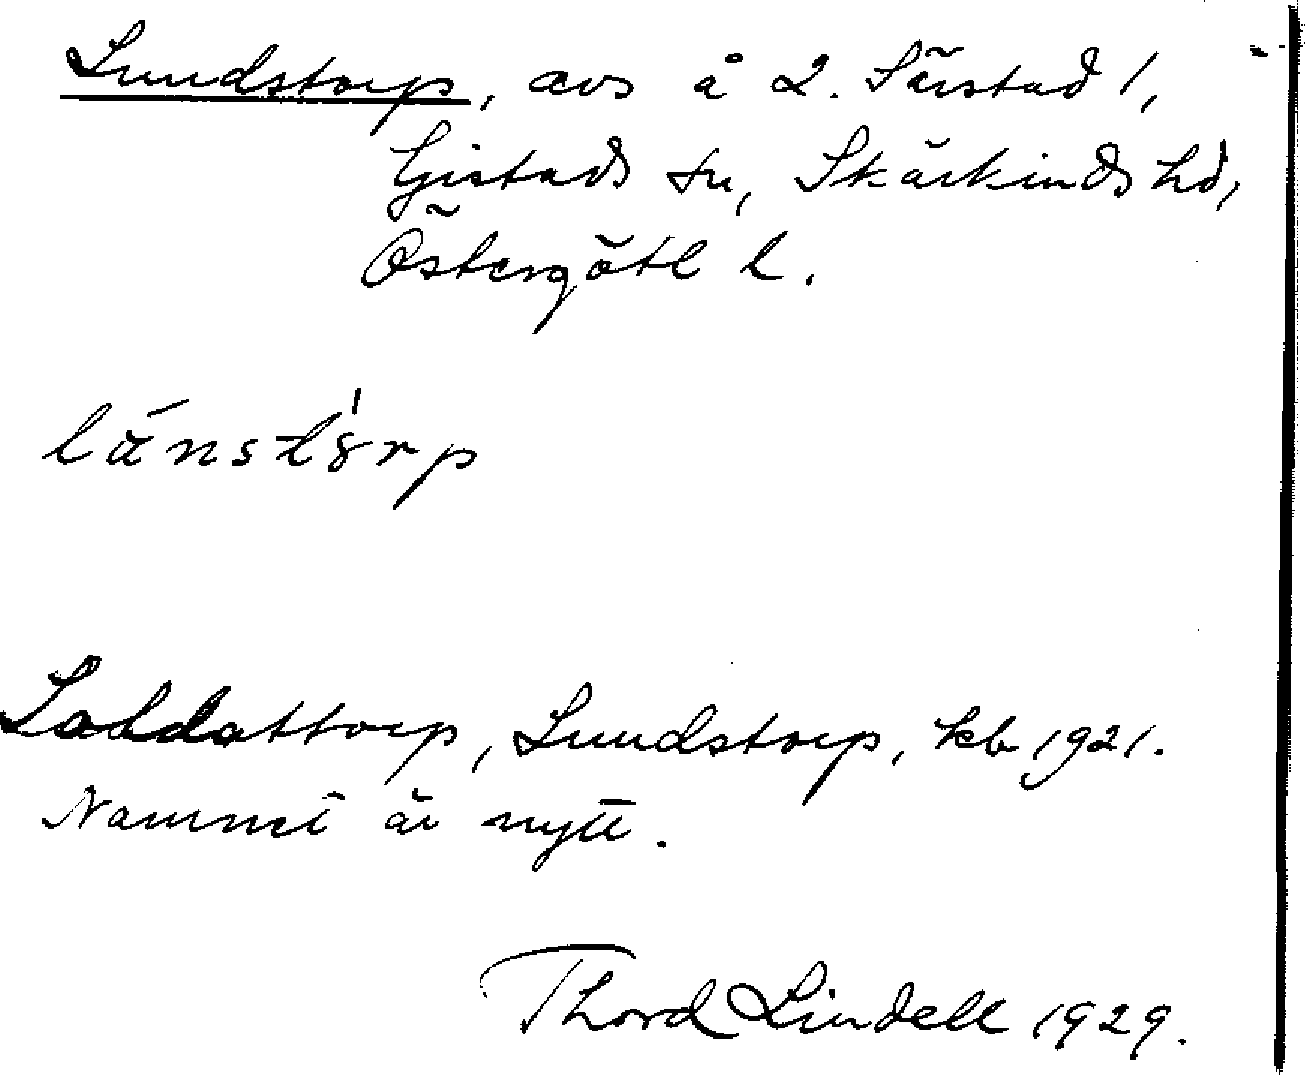 Lundstorp, avs å L. Särstad 1,
Gistads sn, Skärkinds hd,
Östergötl l.
lánstórp
Soldattorp, Lundstorp, kb 1921.
Namnet är nytt.
Thord Lindell 1929.